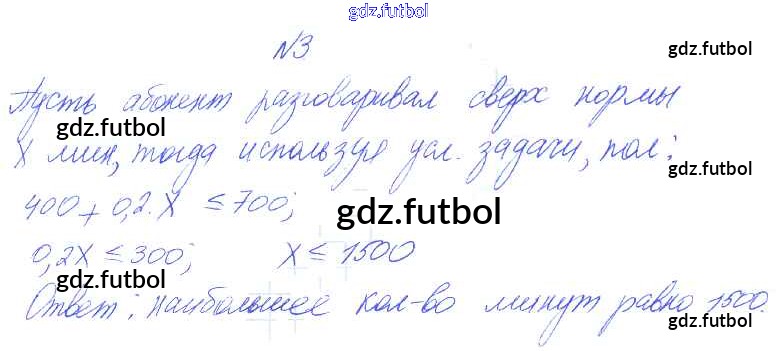 gdz.futbol
№3
gdz.futbol
Пусть абонент разговаривал сверх нормы
gdz.futbol
X мин, тогда используя усл. задачи, пол:
gdz.futbol
400 + 0,2·X ≤ 700;
gdz.futbol
0,2X ≤ 300; X ≤ 1500
gdz.futbol
Ответ: наибольшее кол-во минут равно 1500.
gdz.futbol